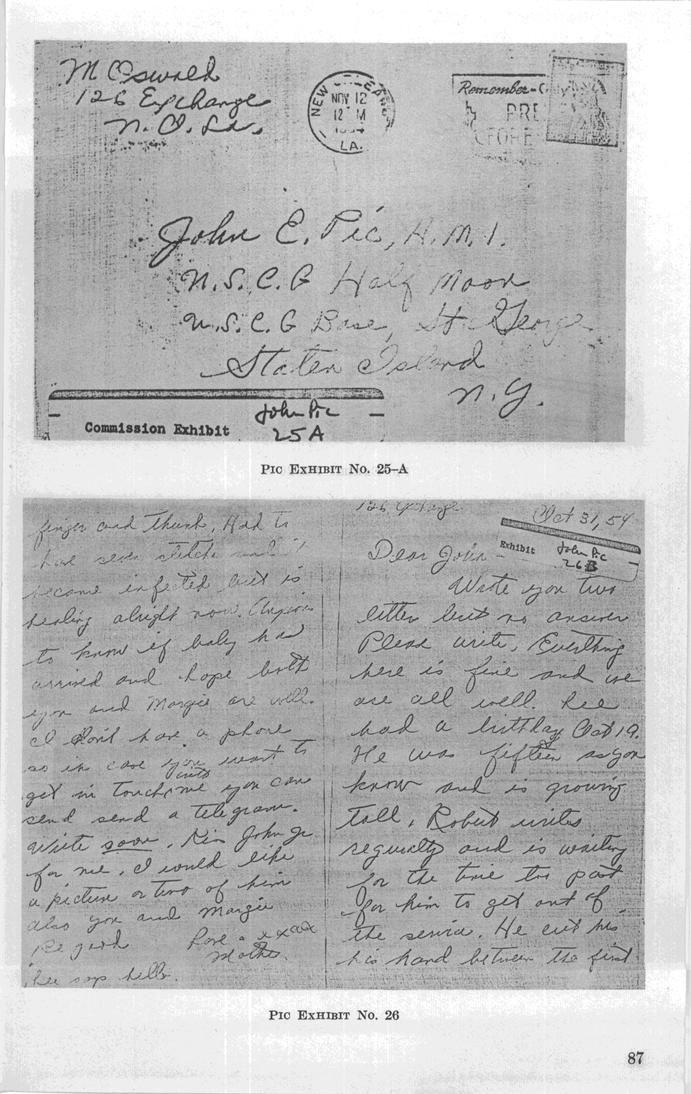 M Oswald
126 Exchange
N. O. La.
NEW ORLEANS
NOV 12
12 M
1954
LA.
Remember-
John E. Pic, H.M.1.
U.S.C.G Half Moon
U.S.C.G Base, St. George
Staten Island
N.Y.
Commission Exhibit
John Pic
25 A
PIC EXHIBIT NO. 25-A
126 Exchange
Oct 31, 54
Exhibit
John Pic
26 B
Dear John -
Write you two
letter but no answer
Pleas write. Everthing
here is fine and we
are all well. Lee
had a birthday Oct 19.
He was fifteen as you
know and is growing
tall. Robert writes
regualty and is waiting
for the time too past
for him to get out of
the service. He cut his
his hand between the first
finger and thumb. Had to
have seven stitches and it
became infected but is
healing alright now. Anxious
to know if baby has
arrived and hope both
you and Margie are well.
I don't have a phone
so in case you want to
get in touch with me you can
send send a telegram.
Write soon. Kiss John Jr
for me. I would like
a picture or two of him
also you and Margie
Be good
Love xxxx
Mother.
Lee says hello.
PIC EXHIBIT NO. 26
87